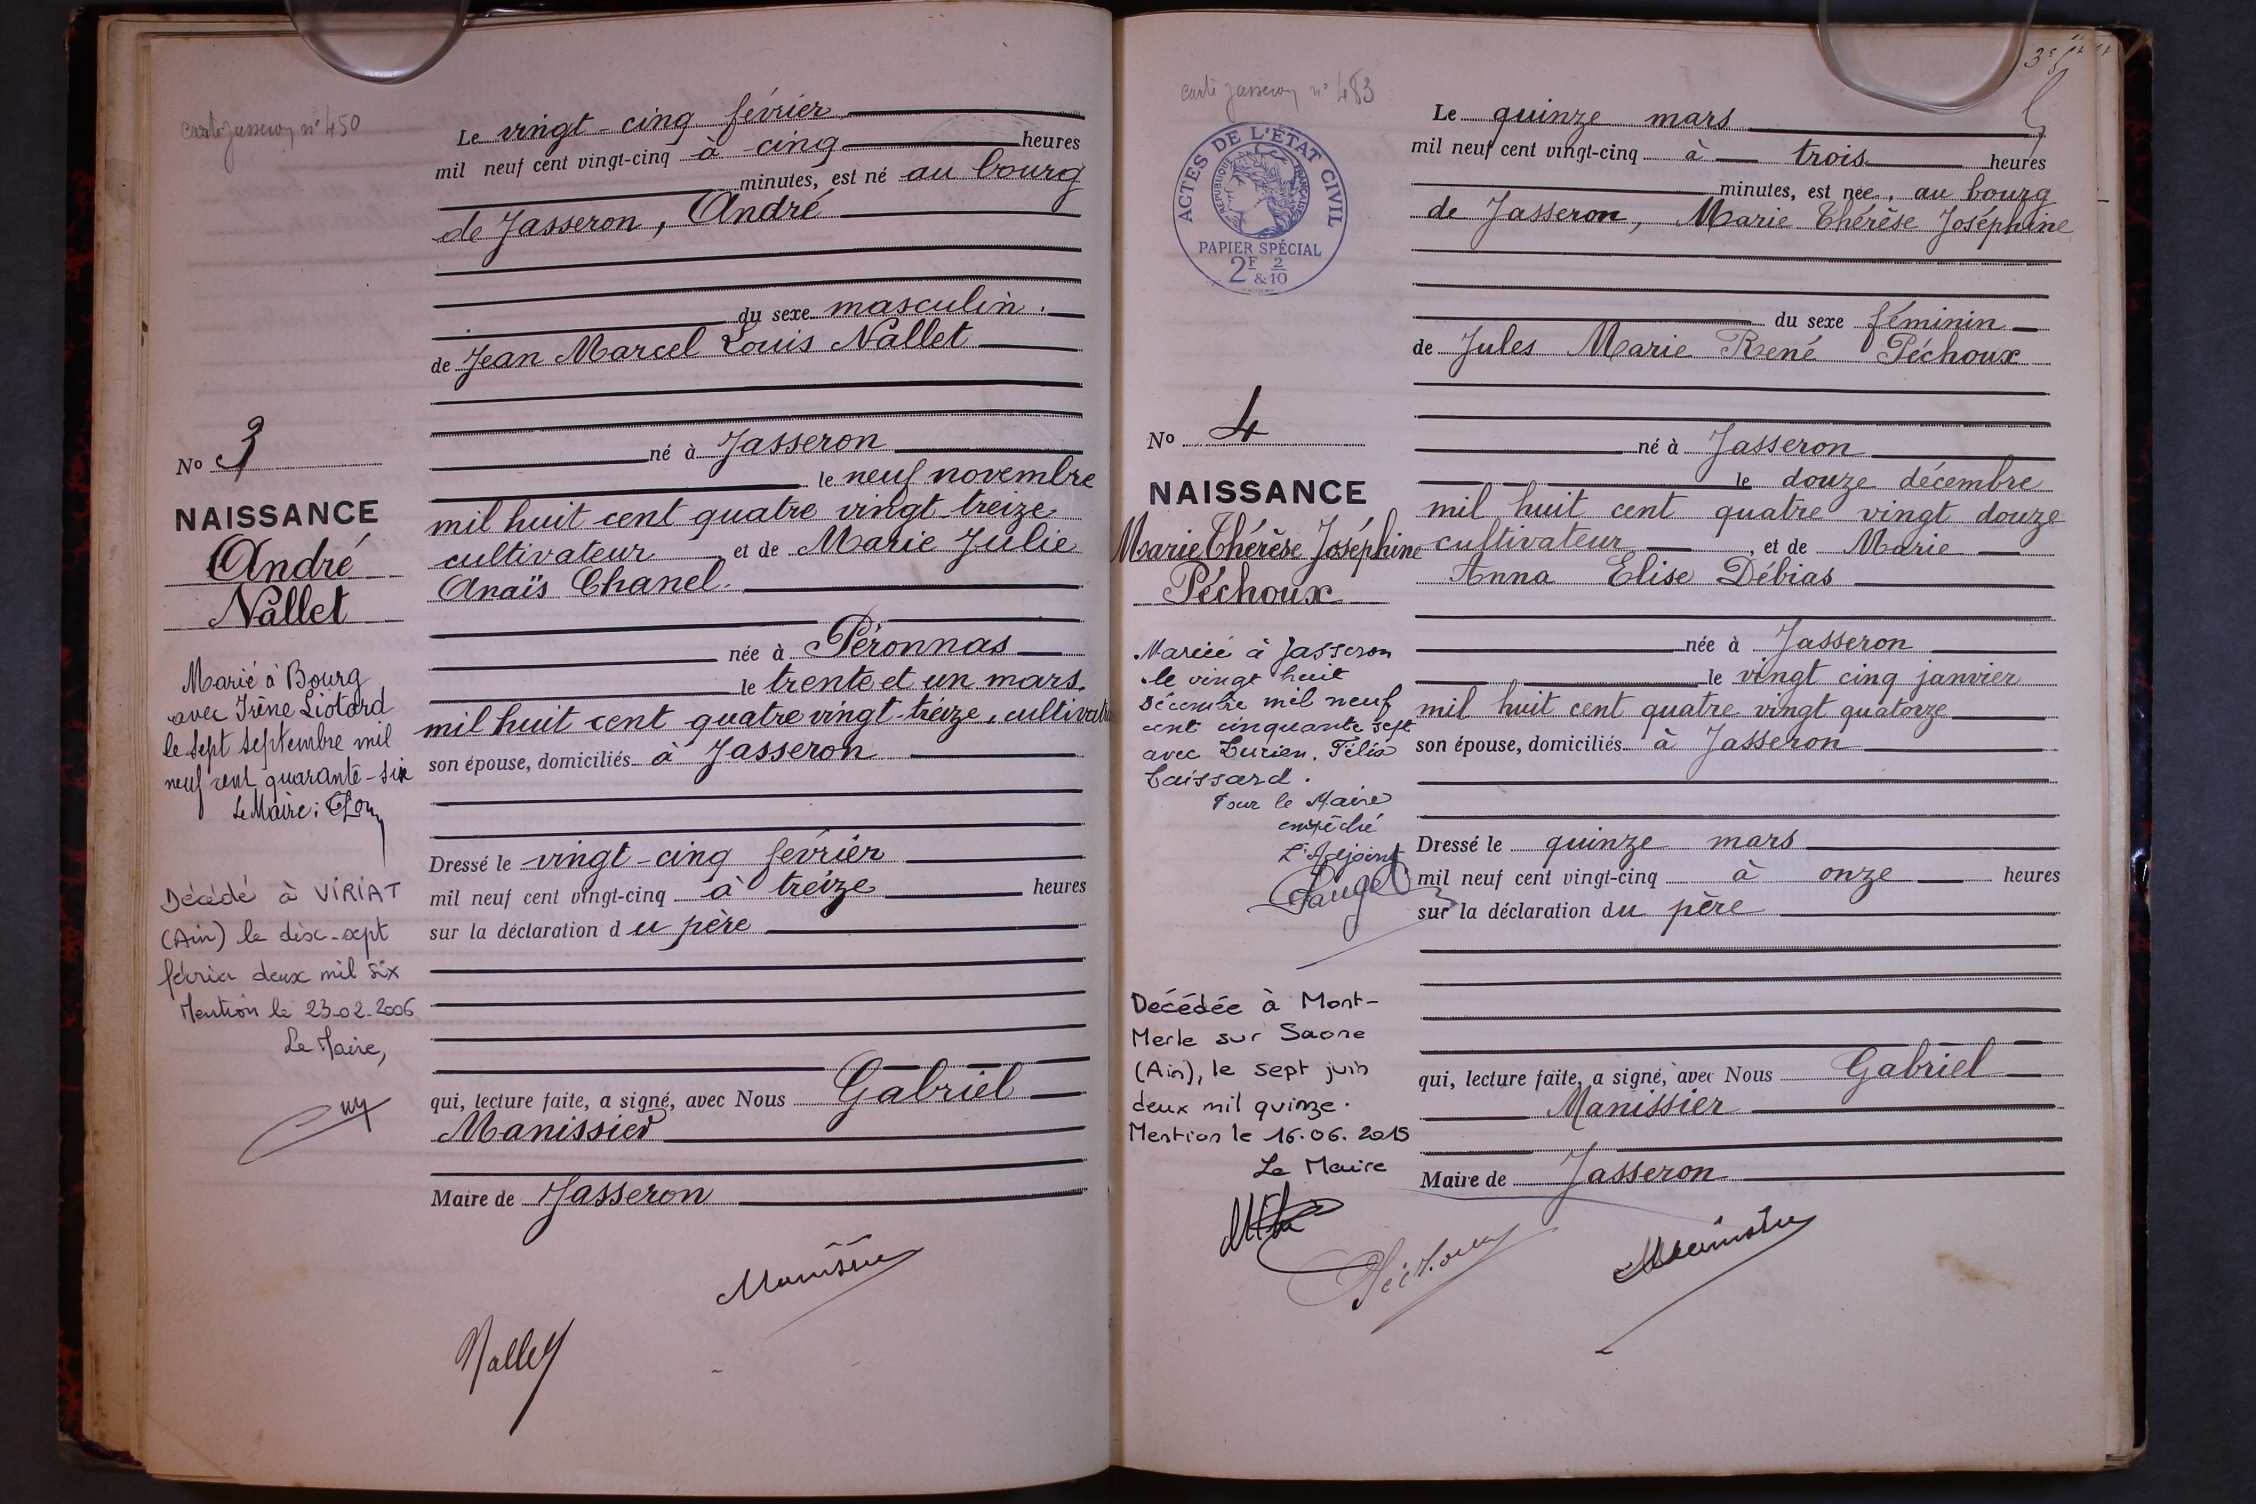 carte Jasseron n° 450
Le vingt-cinq février
mil neuf cent vingt-cinq à cinq heures
minutes, est né au bourg
de Jasseron, André
du sexe masculin.
de Jean Marcel Louis Nallet
né à Jasseron
le neuf novembre
mil huit cent quatre vingt-treize
cultivateur, et de Marie Julie
Anaïs Chanel.
née à Péronnas
le trente et un mars
mil huit cent quatre vingt-treize, cultivatr
son épouse, domiciliés à Jasseron
Dressé le vingt-cinq février
mil neuf cent vingt-cinq à treize heures
sur la déclaration du père
qui, lecture faite, a signé, avec Nous Gabriel
Manissier
Maire de Jasseron
Manissier
Nallet
No 3
NAISSANCE
André
Nallet
Marié à Bourg
avec Irène Liotard
le sept septembre mil
neuf cent quarante-six
Le Maire:
Décédé à VIRIAT
(Ain) le dix-sept
février deux mil six
Mention le 23-02-2006
Le Maire,
carte Jasseron n° 483
ACTES DE L'ÉTAT CIVIL
RÉPUBLIQUE FRANÇAISE
PAPIER SPÉCIAL
2F & 2/10
Le quinze mars
mil neuf cent vingt-cinq à trois heures
minutes, est née, au bourg
de Jasseron, Marie Thérèse Joséphine
du sexe féminin
de Jules Marie René Péchoux
né à Jasseron
le douze décembre
mil huit cent quatre vingt douze
cultivateur, et de Marie
Anna Elise Débias
née à Jasseron
le vingt cinq janvier
mil huit cent quatre vingt quatorze
son épouse, domiciliés à Jasseron
Dressé le quinze mars
mil neuf cent vingt-cinq à onze heures
sur la déclaration du père
qui, lecture faite, a signé, avec Nous Gabriel
Manissier
Maire de Jasseron
Péchoux
Manissier
No 4
NAISSANCE
Marie Thérèse Joséphine
Péchoux
Mariée à Jasseron
le vingt huit
Décembre mil neuf
cent cinquante sept
avec Lucien, Félix
Laissard.
Pour le Maire
empêché
L'Adjoint
Décédée à Mont-
Merle sur Saone
(Ain), le sept juin
deux mil quinze.
Mention le 16.06.2015
Le Maire